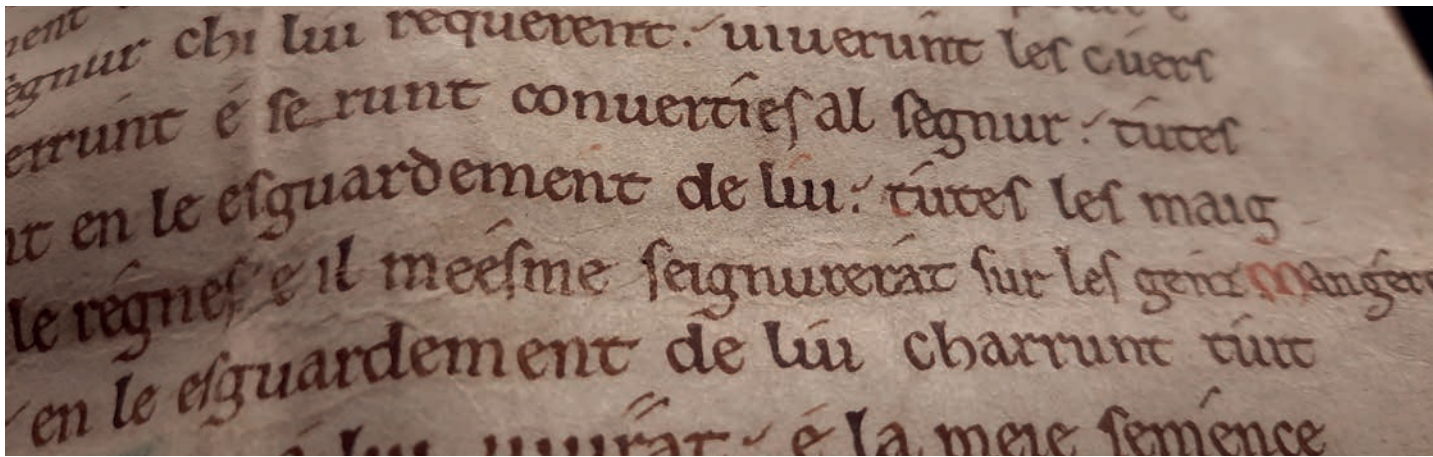 chi lui requerent. uiuerunt les cuers
é se runt conuerties al segnur: tutes
en le esguardement de lui: tutes les maig
le regnes e il meesme seignurerat sur les genz Mangere
en le esguardement de lui charrunt tuit
lui uiurat é la meie semence